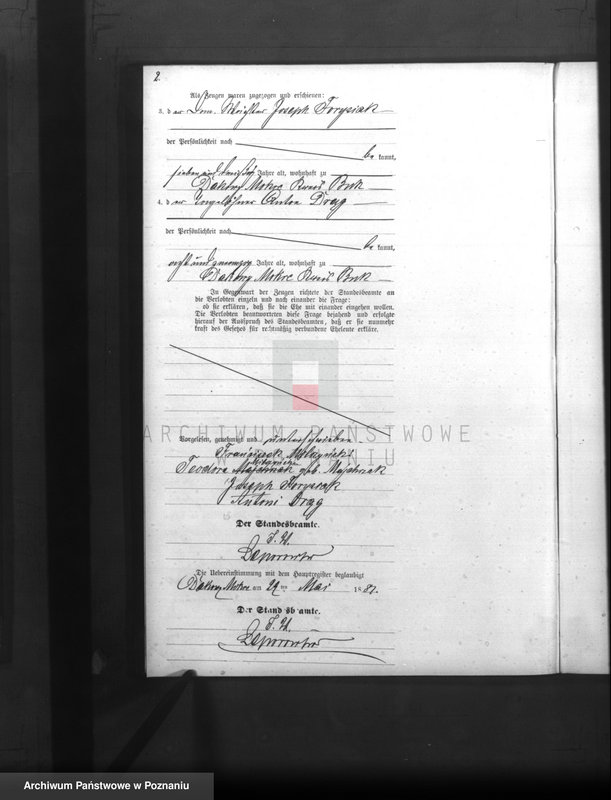 2.
Als Zeugen waren zugezogen und erschienen:
3. der Dom. Joseph Forysiak
der Persönlichkeit nach
bekannt,
sieben und Jahre alt, wohnhaft zu
Dakowy Mokre Kreis Buk
4. der Tagelöhner Anton Drąg
der Persönlichkeit nach
bekannt,
acht und zwanzig Jahre alt, wohnhaft zu
Dakowy Mokre Kreis Buk
In Gegenwart der Zeugen richtete der Standesbeamte an
die Verlobten einzeln und nach einander die Frage:
ob sie erklären, daß sie die Ehe mit einander eingehen wollen.
Die Verlobten beantworteten diese Frage bejahend und erfolgte
hierauf der Ausspruch des Standesbeamten, daß er sie nunmehr
kraft des Gesetzes für rechtmäßig verbundene Eheleute erkläre.
ARCHIWUM PAŃSTWOWE
W POZNANIU
Vorgelesen, genehmigt und unterschrieben
Franciszek
Teodora geb. Majchrzak
Joseph Forysiak
Antoni Drąg
Der Standesbeamte.
Die Uebereinstimmung mit dem Hauptregister beglaubigt
Dakowy Mokre am 29 ten Mai 1881.
Der Standesbeamte.
Archiwum Państwowe w Poznaniu